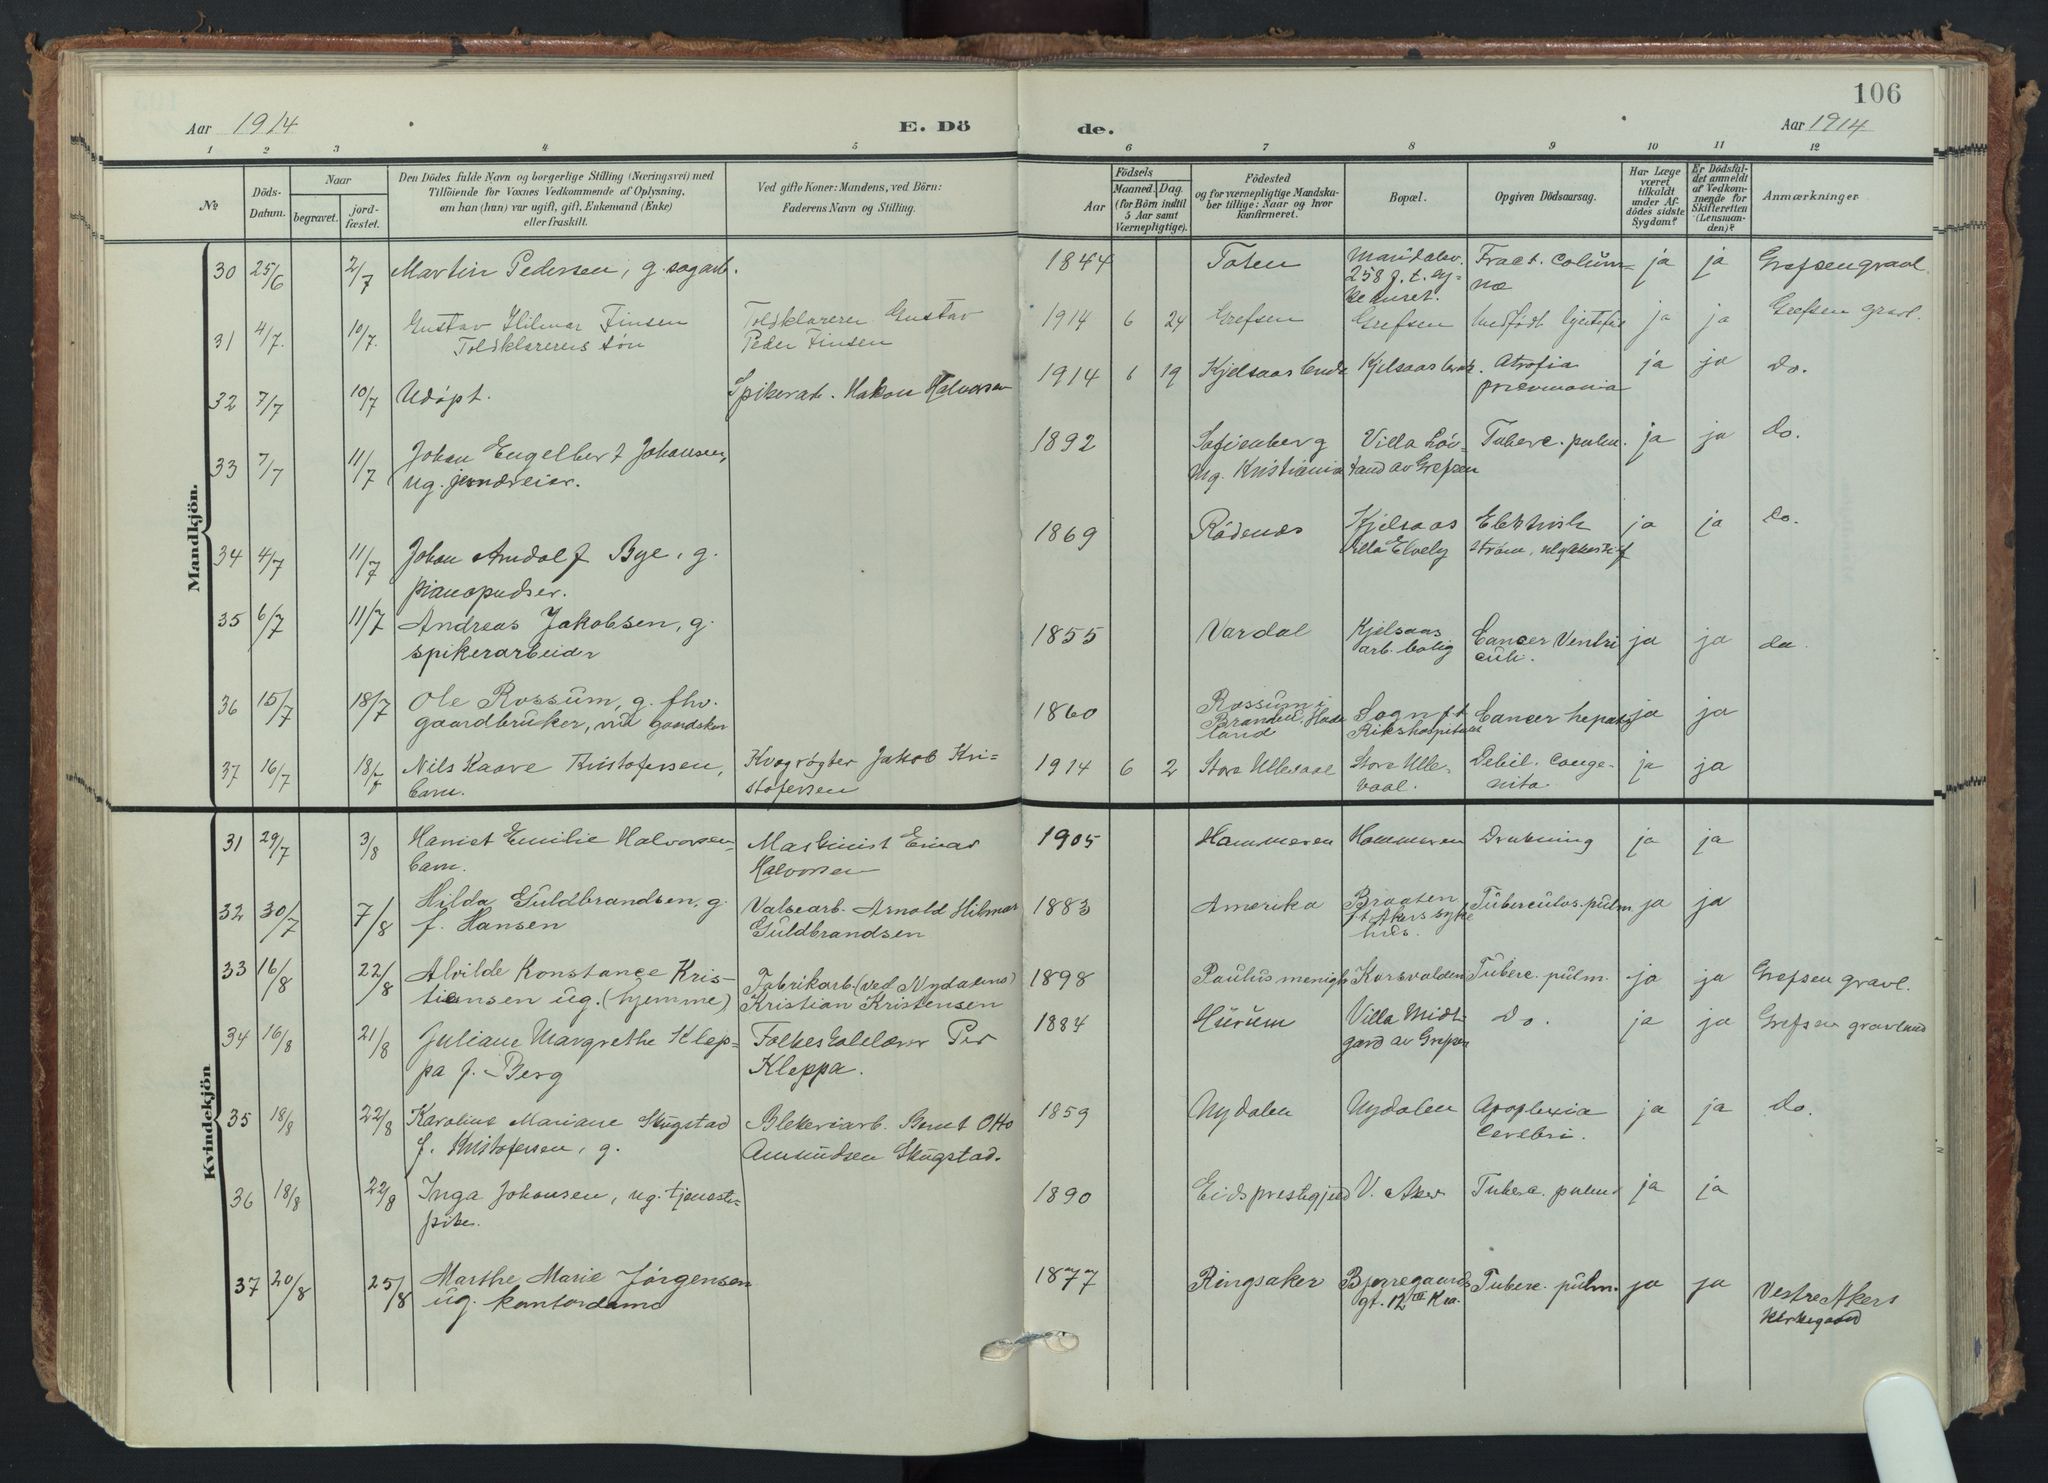 106
Aar 1914
E. Dö
de.
Aar 1914
1 2 3 4 5 6 7 8 9 10 11 12
№
Döds-
Datum.
Naar
begravet.
jord-
fæstet.
Den Dödes fulde Navn og borgerlige Stilling (Næringsvei) med
Tilföiende for Voxnes Vedkommende af Oplysning,
om han (hun) var ugift, gift, Enkemand (Enke)
eller fraskilt.
Ved gifte Koner: Mandens, ved Börn:
Faderens Navn og Stilling.
Födsels
Aar
Maaned.
Dag.
(for Börn indtil
5 Aar samt
Værnepligtige).
Födested
og for værnepligtige Mandsku-
ber tillige: Naar og hvor
konfirmeret.
Bopæl.
Opgiven Dödsaarsag.
Har Læge
været
tilkaldt
under Af-
dödes sidste
Sygdom?
Er Dödsful-
det anmeldt
af Vedkom-
mende for
Skifteretten
(Lensman-
den)?
Anmærkninger
Mandkjön.
30 25/6 2/7 Martin Pedersen, g. sagarb. 1844 Toten Maridalsv. Fract. colum- ja ja Grefsen gravl.
258 f. t. sy-
næ
31 4/7. 10/7. Gustav Hilmar Finsen Toldklarerer Gustav 1914 6 24 Grefsen Grefsen Medfødt hjertefeil ja ja Grefsen gravl.
Toldklarerens søn Peder Finsen
32 7/7 10/7 Udøpt. Spikerarb. Hakon Halvorsen 1914 6 19 Kjelsaas Kjelsaas Atrofia ja ja Do.
pneumonia
33 7/7 11/7 Johan Engelbert Johansen, 1892 Sofienberg Villa Löv- Tuberc. pulm. ja ja Do.
ug. Kristiania tand av Grefsen
34 4/7 11/7 Johan Arndolf Bye, g. 1869 Rödenes Kjelsaas Elektrisk ja ja Do.
pianopudser. Villa Elvely strøm,
35 6/7 11/7 Andreas Jakobsen, g. 1855 Vardal Kjelsaas Cancer Ventri ja ja do.
spikerarbeider arb. bolig culi.
36 15/7 18/7 Ole Rossum, g. fhv. 1860 Rossum i Sogn f. t. Cancer hepatis ja ja
gaardbruker, nu Brandbu, Hade Rikshospitalet
land
37 16/7 18/7 Nils Kaare Kristofersen, Kvægrøgter Jakob Kri- 1914 6 2 Store Ullevaal Store Ulle- Debil. conge- ja ja
barn. stofersen vaal. nita
Kvindekjön
31 29/7 3/8 Harriet Emilie Halvorsen Maskinist Einar 1905 Hammeren Hammeren Drukning ja ja
barn. Halvorsen
32 30/7 7/8 Hilda Guldbrandsen, g. Valsearb. Arnold Hilmar 1883 Amerika Braaten Tuberculos. pulm ja ja
f. Hansen Guldbrandsen f. t. Akers syke
hus.
33 16/8 22/8 Alvilde Konstance Kris- Fabrikarb. (ved Nydalens) 1898 Paulus menigh. Korsvolden Tuberc. pulm. ja ja Grefsen gravl.
tiansen ug. (hjemme) Kristian Kristensen
34 16/8 21/8 Juliane Margrethe Klep- Folkeskolelærer Per 1884 Hurum Villa Midt- Do. ja ja Grefsen gravlund
pa f. Berg Kleppa. gard av Grefsen
35 18/8 22/8 Karoline Mariane Skugstad Blekeriarb. Bernt Otto 1859 Nydalen Nydalen Apoplexia ja ja Do.
f. Kristofersen, g. Amundsen Skugstad. Cerebri.
36 18/8 22/8 Inga Johansen, ug. tjeneste- 1890 Eids prestegjeld V. Aker Tuberc. pulm ja ja
pike.
37 20/8 25/8 Marthe Marie Jørgensen 1877 Ringsaker Bjerregaards Tuberc. pulm. ja ja Vestre Akers
ug. kontordame gt. 12 III Kra. Kirkegaard